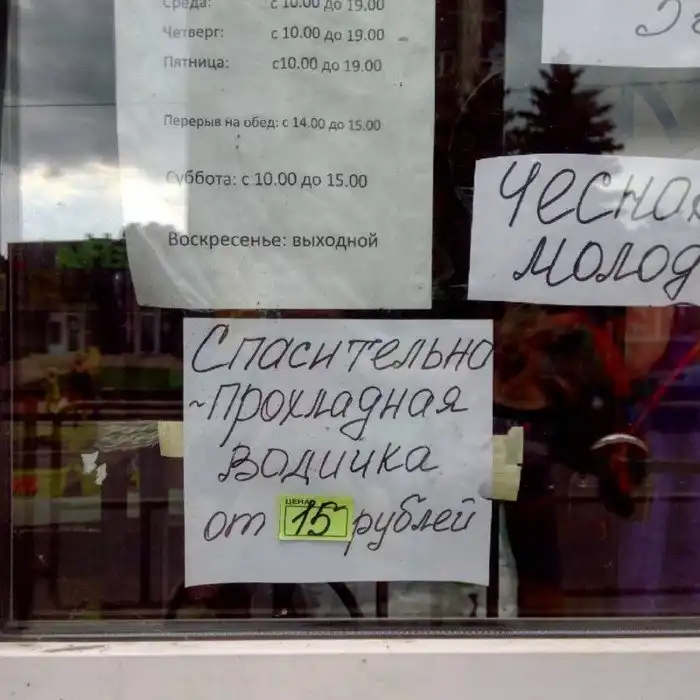 Среда: с 10.00 до 19.00
Четверг: с 10.00 до 19.00
Пятница: с10.00 до 19.00
Перерыв на обед: с 14.00 до 15.00
Суббота: с 10.00 до 15.00
Воскресенье: выходной
Чесная
молод
Спасительно
~прохладная
водичка
от ЦЕНА 15 рублей